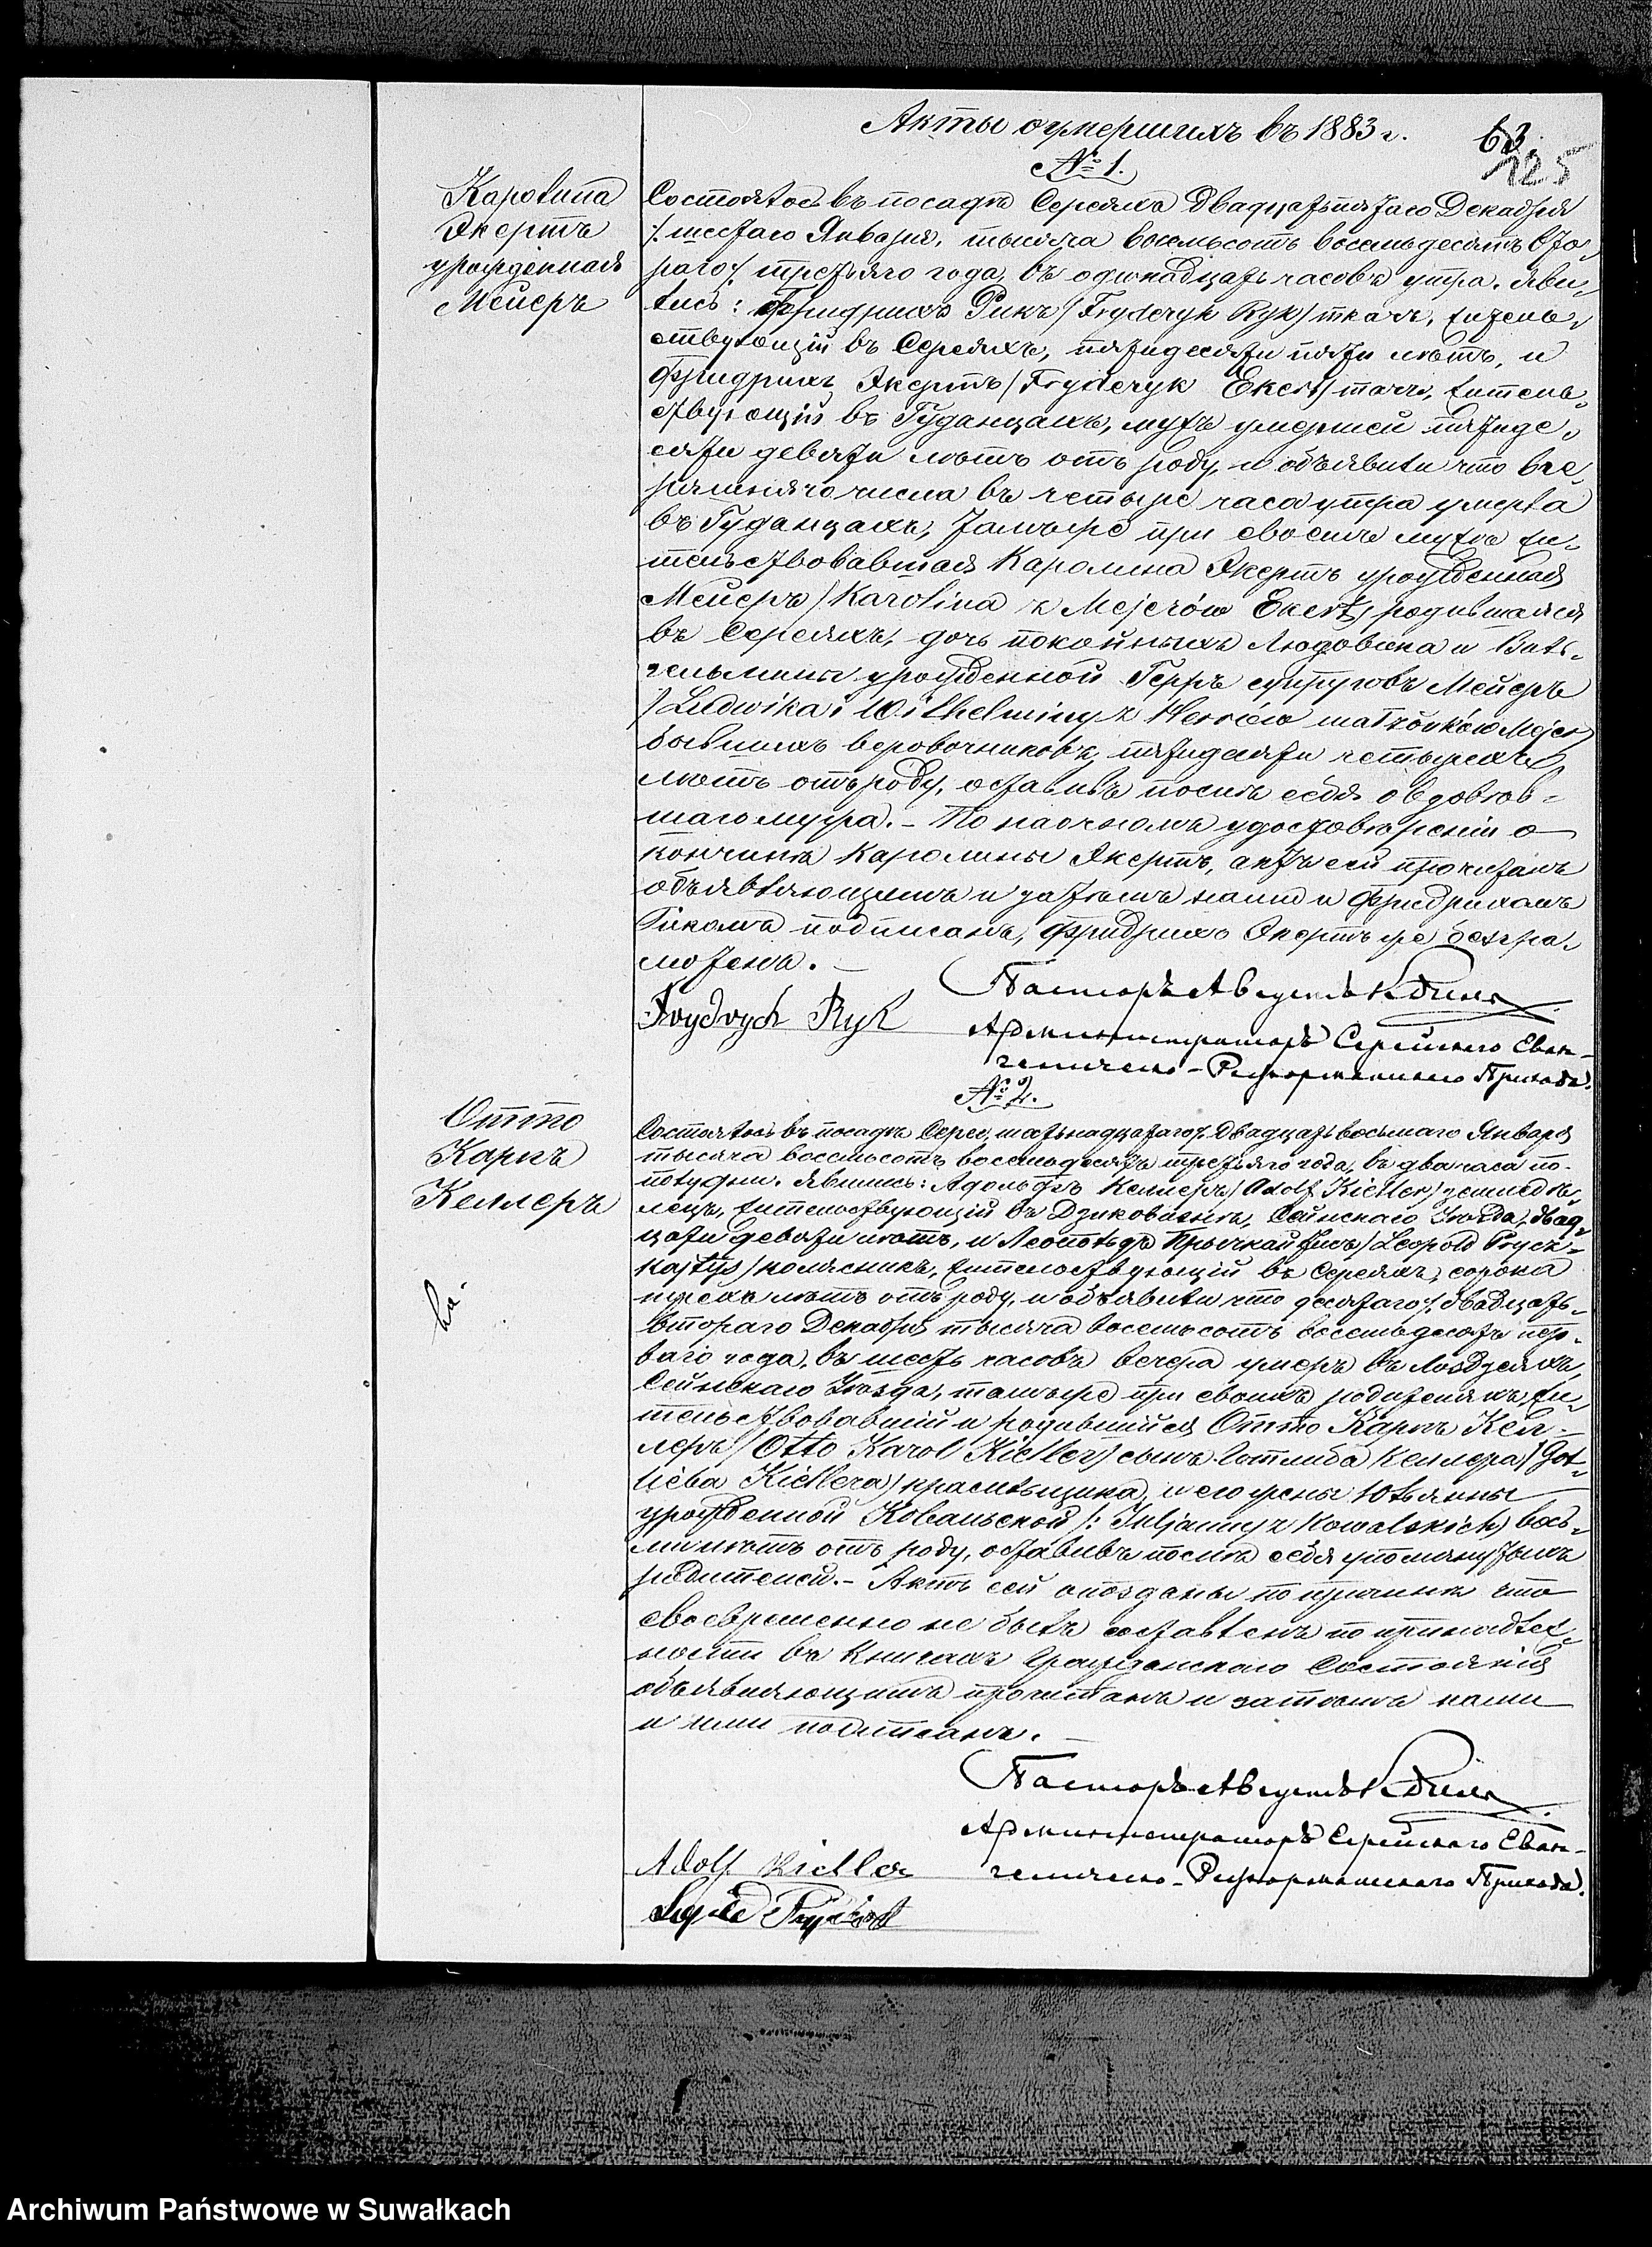 Акты о умершихъ въ 1883 г.
63.
125
№ 1.
Каролина
Экертъ
урожденная
Мейеръ
Состоялось въ посадѣ Сереяхъ двадцатьпятаго Декабря
/: шестаго Января, тысяча восемьсотъ восемьдесятъ вто-
раго :/ третьяго года, въ одинадцать часовъ утра. Яви-
лись: Фридрихъ Рикъ /Fryderyk Ryk/ ткачъ, житель-
ствующій въ Сереяхъ, пятидесяти пяти лѣтъ, и
Фридрихъ Экертъ /Fryderyk Ekert/ ткачъ, житель-
ствующій въ Гуданцахъ, мужъ умершей пятиде-
сяти девяти лѣтъ отъ роду, и объявили что вче-
рашняго числа въ четыре часа утра умерла
въ Гуданцахъ, тамъ же при своемъ мужѣ жи-
тельствовавшая Каролина Экертъ урожденная
Мейеръ /Karolina z Mejerów Ekert/ родившаяся
въ Сереяхъ, дочь покойныхъ Людовика и Виль-
гельмины урожденной Герръ супруговъ Мейеръ
/Ludwika i Wilhelminy z Herrów małżonków Mejer/
бывшихъ веровочниковъ, пятидесяти четырехъ
лѣтъ отъ роду, оставивъ послѣ себя овдовѣв-
шаго мужа. – По наочномъ удостовѣреніи о
кончинѣ Каролины Экертъ, актъ сей прочитанъ
объявляющимъ и затѣмъ нами и Фридрихомъ
Рикомъ подписанъ, Фридрихъ Экертъ же безгра-
мотенъ. –
Пасторъ Августъ
Frydrych Ryk
Администраторъ Серейскаго Еван-
гелическо-Реформатскаго Прихода.
№ 2.
Отто
Карлъ
Келлеръ
Состоялось въ посадѣ Сереи, шестьнадцатаго /: двадцатьвосьмаго Января
тысяча восемьсотъ восемьдесятъ третьяго года, въ два часа по-
полудни. Явились: Адольфъ Келлеръ /Adolf Kieller/ земледѣ-
лецъ, жительствующій въ Сейнскаго Уѣзда, двад-
цати девяти лѣтъ, и Леопольдъ Прычкайтисъ /Leopold Prycz-
kajtys/ колясникъ, жительствующій въ Сереяхъ, сорока
трехъ лѣтъ отъ роду, и объявили что десятаго /: двадцать-
втораго Декабря тысяча восемьсотъ восемьдесятъ пер-
ваго года, въ шесть часовъ вечера умеръ въ Лоздзеяхъ,
Сейнскаго Уѣзда, тамъ же при своихъ родителяхъ жи-
тельствовавшій и родившійся Отто Карлъ Кел-
леръ /Otto Karol Kieller/ сынъ Готлиба Келлера /Got-
lieba Kiellera/ красильщика, и его жены Юльянны
урожденной Ковальской /: Juljanny z Kowalskich/ вось-
ми лѣтъ отъ роду, оставивъ послѣ себя упомянутыхъ
родителей. – Актъ сей опозданы по причинѣ что
своевременно не былъ составленъ по принадлеж-
ности въ Книгахъ Гражданскаго Состоянія
объявляющимъ прочитанъ и затѣмъ нами
и ими подписанъ. –
Пасторъ Августъ
Администраторъ Серейскаго Еван-
Adolf Kieller
гелическо-Реформатскаго Прихода.
Archiwum Państwowe w Suwałkach